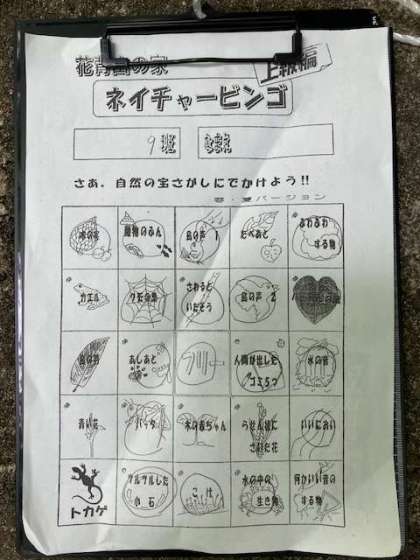 花背山の家
上級編
ネイチャービンゴ
9班
なまえ
さあ、自然の宝さがしにでかけよう!!
春・夏バージョン
木の実
動物のふん
鳥の声 1
たべあと
ふわふわ
する物
カエル
クモの巣
さわると
いたそう
鳥の声 2
鳥の羽
あしあと
フリー
人間が出した
ゴミ5つ
水の音
青い花
バッタ
木の赤ちゃん
らせん状に
さいた花
いいにおい
トカゲ
ツルツルした
小石
こけ
水の中の
生き物
何かいい音の
する物